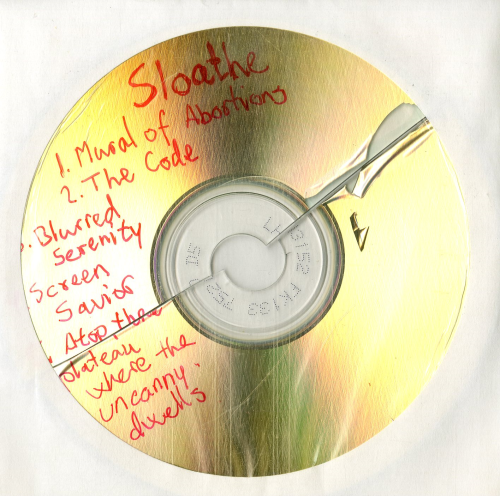 Sloathe
1. Mural of Abortions
2. The Code
Blurred
Serenity
Screen
Savior
Atop the
plateau
where the
uncanny
dwells
3152 FK133 752
D5